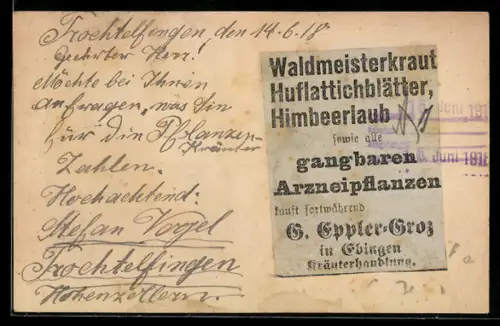 Trochtelfingen, den 14.6.18
Geehrter Herr!
Möchte bei Ihnen
anfragen, was Sie
für die Pflanzen-
Kräuter
Zahlen.
Hochachtend:
Stefan Vogel
Trochtelfingen
Hohenzollern.
Waldmeisterkraut
Huflattichblätter,
Himbeerlaub
sowie alle
gangbaren
Arzneipflanzen
kauft fortwährend
G. Eppler-Groz
in Ebingen
Kräuterhandlung.
Juni 191
Juni 191